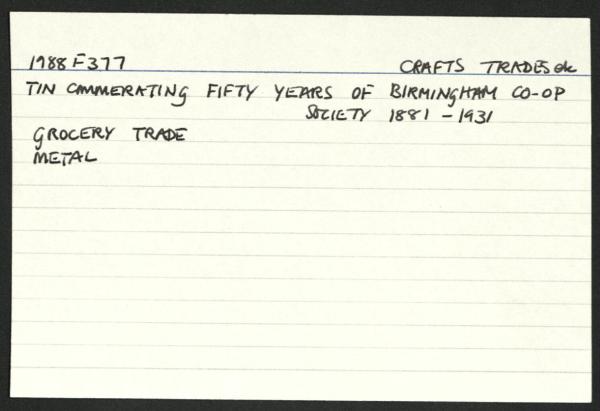 1988 F377 CRAFTS TRADES etc
TIN CMMERATING FIFTY YEARS OF BIRMINGHAM CO-OP
SOCIETY 1881 - 1931
GROCERY TRADE
METAL